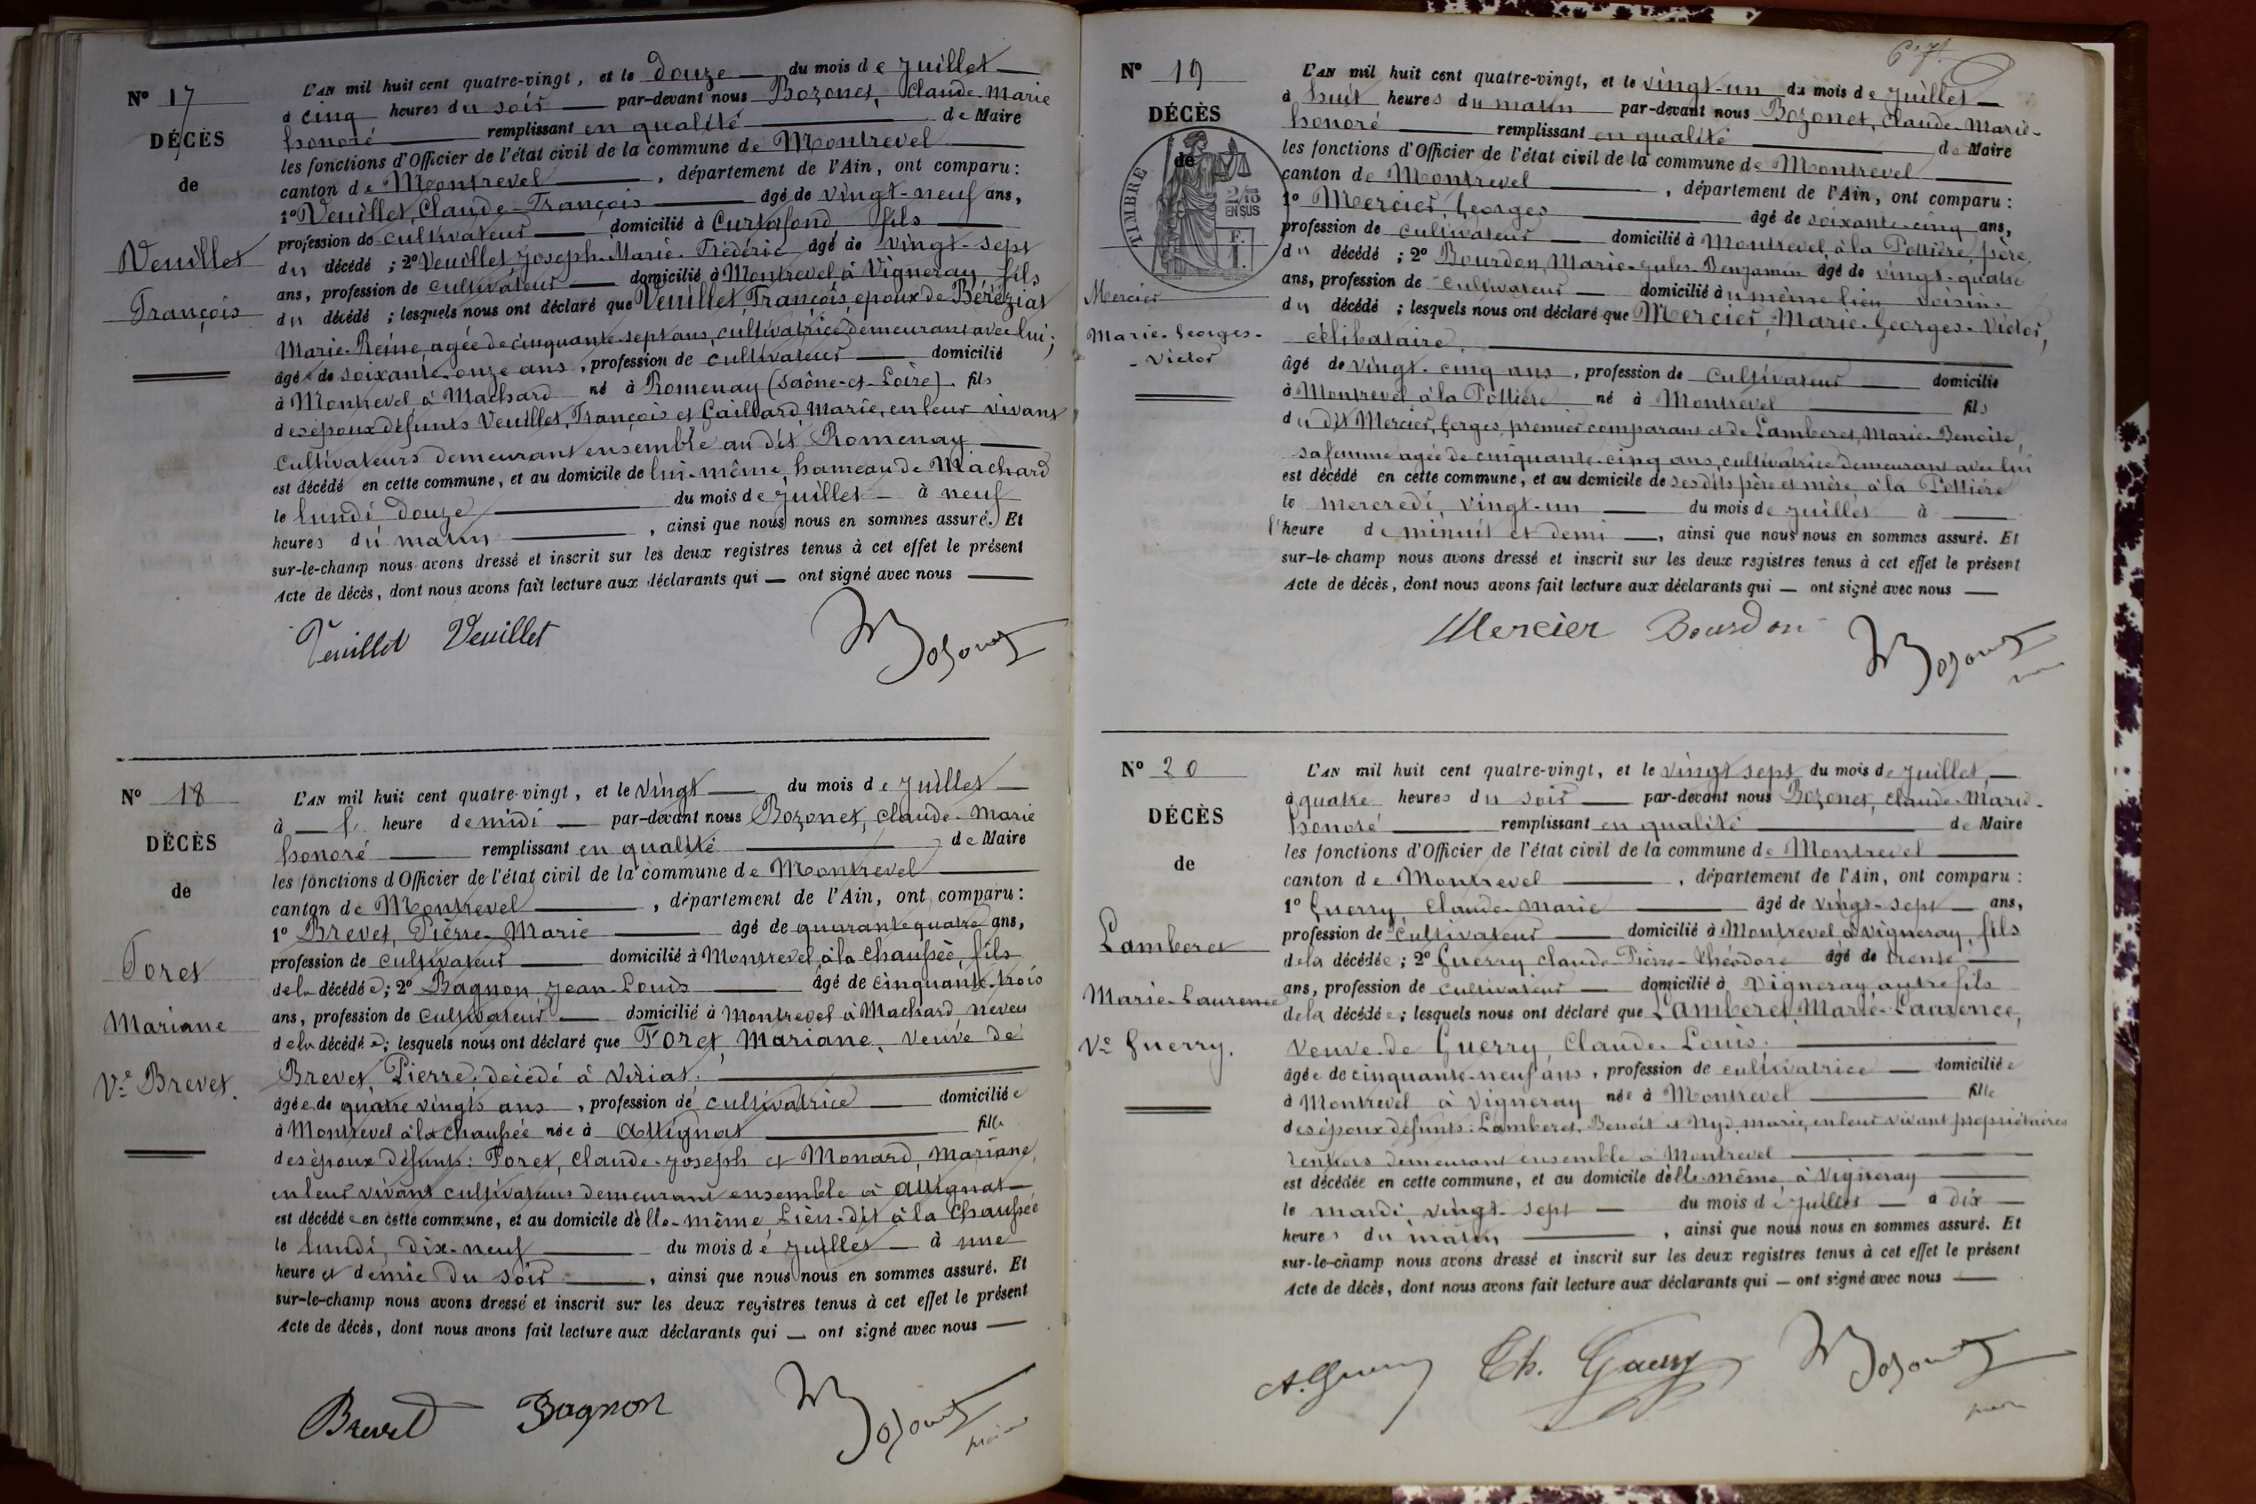 N° 17
DÉCÈS
de
Veuillet
François
L'AN mil huit cent quatre-vingt, et le douze du mois de Juillet
à cinq heures du soir par-devant nous Bozonet, Claude-Marie
honoré remplissant en qualité de Maire
les fonctions d'Officier de l'état civil de la commune de Montrevel
canton de Montrevel, département de l'Ain, ont comparu :
1° Veuillet, Claude-François âgé de vingt-neuf ans,
profession de cultivateur domicilié à Curtafond, fils
du décédé ; 2° Veuillet Joseph-Marie-Frédéric âgé de vingt-sept
ans, profession de cultivateur domicilié à Montrevel à Vigneray, fils
du décédé ; lesquels nous ont déclaré que Veuillet, François, époux de Béréziat
Marie-Reine, agée de cinquante-sept ans, cultivatrice, demeurant avec lui ;
âgé de soixante-onze ans, profession de cultivateur domicilié
à Montrevel à Machard né à Romenay (Saône-et-Loire) fils
des époux défunts Veuillet, François et Gaillard Marie, en leur vivant
cultivateurs demeurant ensemble au dit Romenay
est décédé en cette commune, et au domicile de lui-même, hameau de Machard
le lundi douze du mois de Juillet à neuf
heures du matin, ainsi que nous nous en sommes assuré. Et
sur-le-champ nous avons dressé et inscrit sur les deux registres tenus à cet effet le présent
Acte de décès, dont nous avons fait lecture aux déclarants qui — ont signé avec nous
Veuillet Veuillet Bozonet
N° 18
DÉCÈS
de
Foret
Mariane
Ve Brevet.
L'AN mil huit cent quatre-vingt, et le vingt du mois de Juillet
à l' heure de midi par-devant nous Bozonet, Claude-Marie
honoré remplissant en qualité de Maire
les fonctions d'Officier de l'état civil de la commune de Montrevel
canton de Montrevel, département de l'Ain, ont comparu :
1° Brevet, Pierre-Marie âgé de quarante quatre ans,
profession de cultivateur domicilié à Montrevel, à la Chaussée, fils
de la décédée ; 2° Bagnon, Jean-Louis âgé de cinquante-trois
ans, profession de cultivateur, domicilié à Montrevel à Machard, neveu
de la décédée ; lesquels nous ont déclaré que Foret, Mariane, veuve de
Brevet, Pierre, décédé à Viriat.
âgée de quatre vingts ans, profession de cultivatrice domiciliée
à Montrevel à la Chaussée née à Attignat fille
des époux défunts : Foret, Claude-Joseph et Monard, Mariane,
en leur vivant cultivateurs demeurant ensemble à Attignat
est décédée en cette commune, et au domicile d'elle-même Lieu-dit à la Chaussée
le lundi, dix-neuf du mois de Juillet à une
heure et demie du soir, ainsi que nous nous en sommes assuré. Et
sur-le-champ nous avons dressé et inscrit sur les deux registres tenus à cet effet le présent
Acte de décès, dont nous avons fait lecture aux déclarants qui — ont signé avec nous
Brevet Bagnon Bozonet
67
N° 19
DÉCÈS
de
TIMBRE
2/10
EN SUS
F.
1.
Mercier
Marie-Georges-
-Victor
L'AN mil huit cent quatre-vingt, et le vingt-un du mois de Juillet
à huit heures du matin par-devant nous Bozonet, Claude-Marie-
honoré remplissant en qualité de Maire
les fonctions d'Officier de l'état civil de la commune de Montrevel
canton de Montrevel, département de l'Ain, ont comparu :
1° Mercier, Georges âgé de soixante-cinq ans,
profession de cultivateur domicilié à Montrevel, à la Pottière, père
du décédé ; 2° Bourdon, Marie-Jules-Benjamin âgé de vingt-quatre
ans, profession de cultivateur domicilié au même lieu voisin.
du décédé ; lesquels nous ont déclaré que Mercier, Marie-Georges-Victor,
célibataire,
âgé de vingt-cinq ans, profession de cultivateur domicilié
à Montrevel à la Pottière né à Montrevel fils
du dit Mercier, Georges, premier comparant et de Lamberet, Marie-Benoite,
sa femme agée de cinquante-cinq ans, cultivatrice demeurant avec lui
est décédé en cette commune, et au domicile de ses dits père et mère, à la Pottière
le mercredi, vingt-un du mois de Juillet à
l'heure de minuit et demi, ainsi que nous nous en sommes assuré. Et
sur-le-champ nous avons dressé et inscrit sur les deux registres tenus à cet effet le présent
Acte de décès, dont nous avons fait lecture aux déclarants qui — ont signé avec nous
Mercier Bourdon Bozonet
N° 20
DÉCÈS
de
Lamberet
Marie-Laurence
Ve Guerry.
L'AN mil huit cent quatre-vingt, et le vingt sept du mois de Juillet,
à quatre heures du soir par-devant nous Bozonet, Claude-Marie-
honoré remplissant en qualité de Maire
les fonctions d'Officier de l'état civil de la commune de Montrevel
canton de Montrevel, département de l'Ain, ont comparu :
1° Guerry, Claude-Marie âgé de vingt-sept ans,
profession de cultivateur domicilié à Montrevel à Vigneray, fils
de la décédée ; 2° Guerry Claude-Pierre-Théodore âgé de trente
ans, profession de cultivateur domicilié à Vigneray autre fils
de la décédée ; lesquels nous ont déclaré que Lamberet, Marie-Laurence,
veuve de Guerry, Claude-Louis.
âgée de cinquante-neuf ans, profession de cultivatrice domiciliée
à Montrevel à Vigneray née à Montrevel fille
des époux défunts : Lamberet, Benoît et Nyd, Marie, en leur vivant propriétaires
rentiers demeurant ensemble à Montrevel
est décédée en cette commune, et au domicile d'elle-même, à Vigneray
le mardi, vingt-sept du mois de Juillet à dix
heures du matin, ainsi que nous nous en sommes assuré. Et
sur-le-champ nous avons dressé et inscrit sur les deux registres tenus à cet effet le présent
Acte de décès, dont nous avons fait lecture aux déclarants qui — ont signé avec nous
Th. Guerry Bozonet